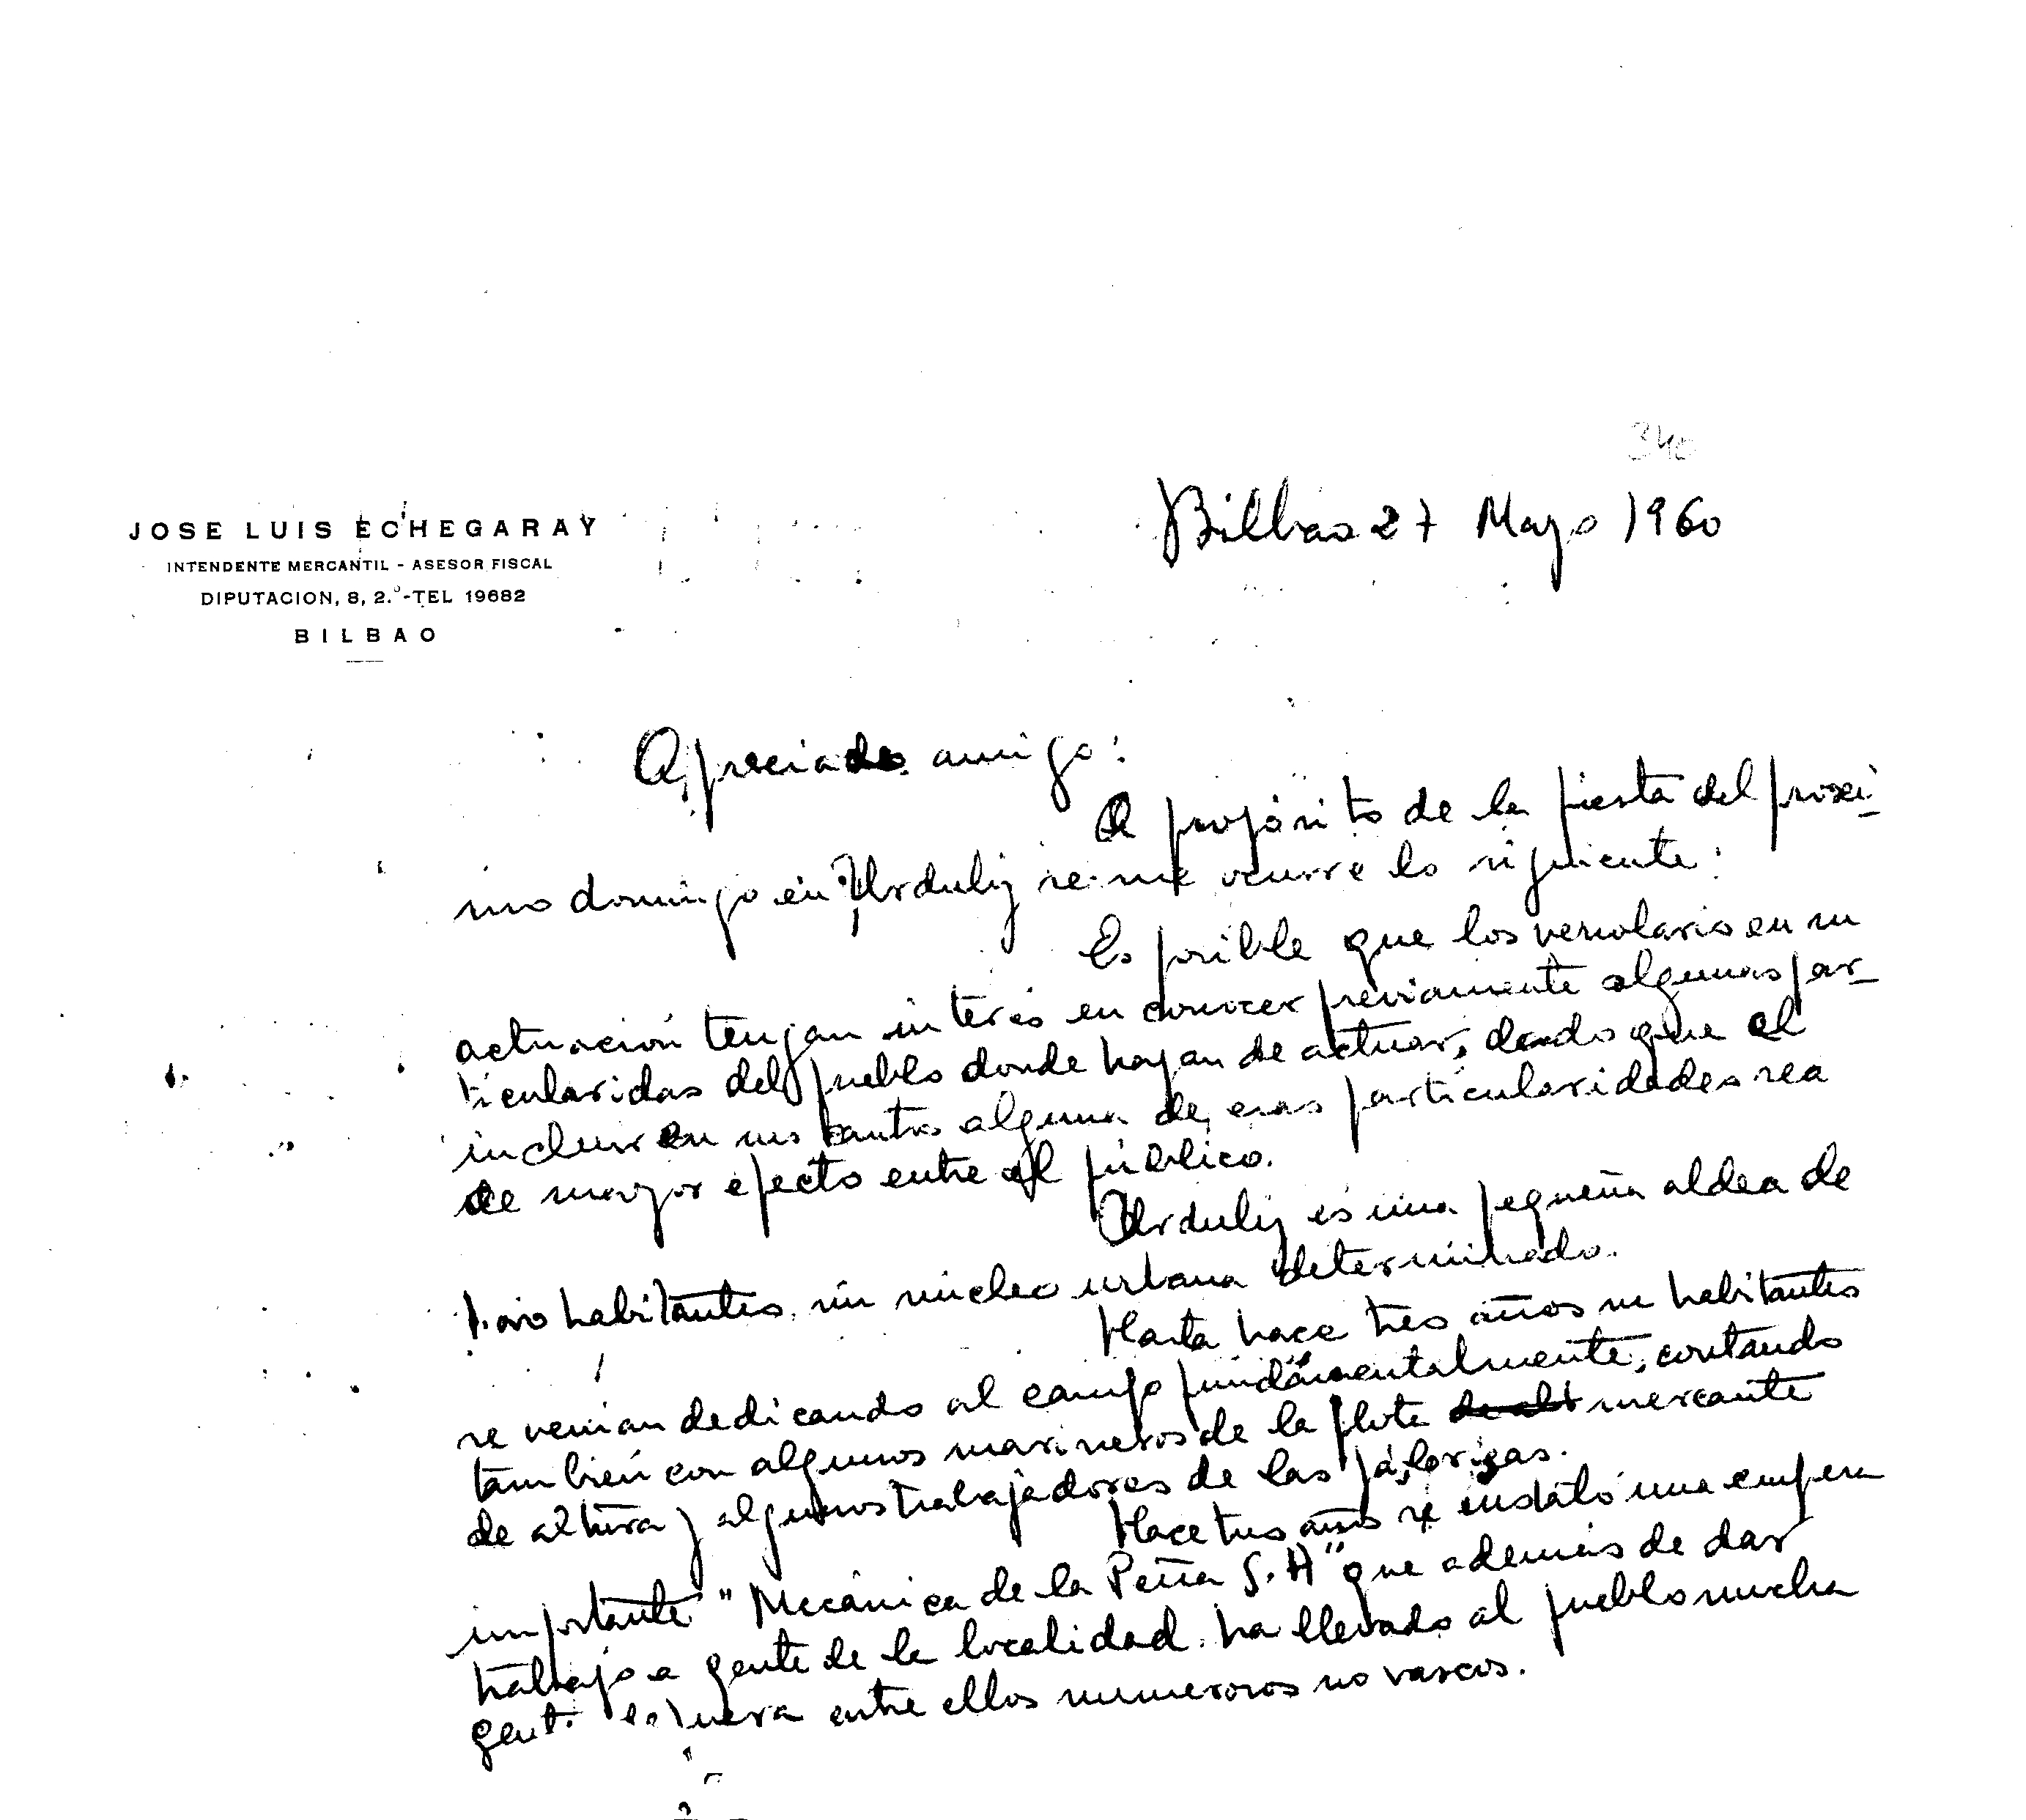 340
Bilbao 27 Mayo 1960
JOSE LUIS ECHEGARAY
INTENDENTE MERCANTIL - ASESOR FISCAL
DIPUTACION, 8, 2.º-TEL 19682
BILBAO
Apreciado amigo:
A propósito de la fiesta del proxi-
mo domingo en Urduliz se me ocurre lo siguiente:
Es posible que los versolaris en su
actuación tengan interés en conocer previamente algunas par-
ticularidas del pueblo donde hayan de actuar, dado que el
incluir en sus cantos alguna de esas particularidades sea
de mayor efecto entre el público.
Urduliz es una pequeña aldea de
habitantes, sin nucleo urbano determinado.
Hasta hace tres años su habitantes
se venian dedicando al campo fundamentalmente, contando
tambien con algunos marineros de la flota de alt mercante
de altura y algunos trabajadores de las fábricas.
Hace tres años se instaló una empresa
importante "Mecánica de la Peña S.A" que además de dar
trabajo a gente de la localidad ha llevado al pueblo mucha
entre ellos numerosos no vascos.